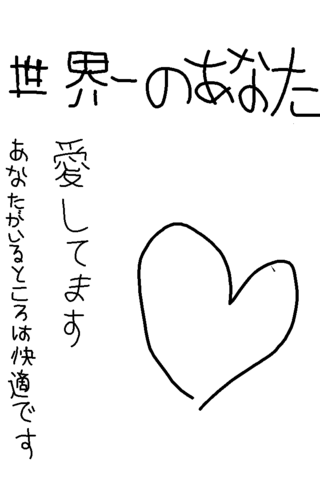 世界一のあなた
愛してます
あなたがいるところは快適です